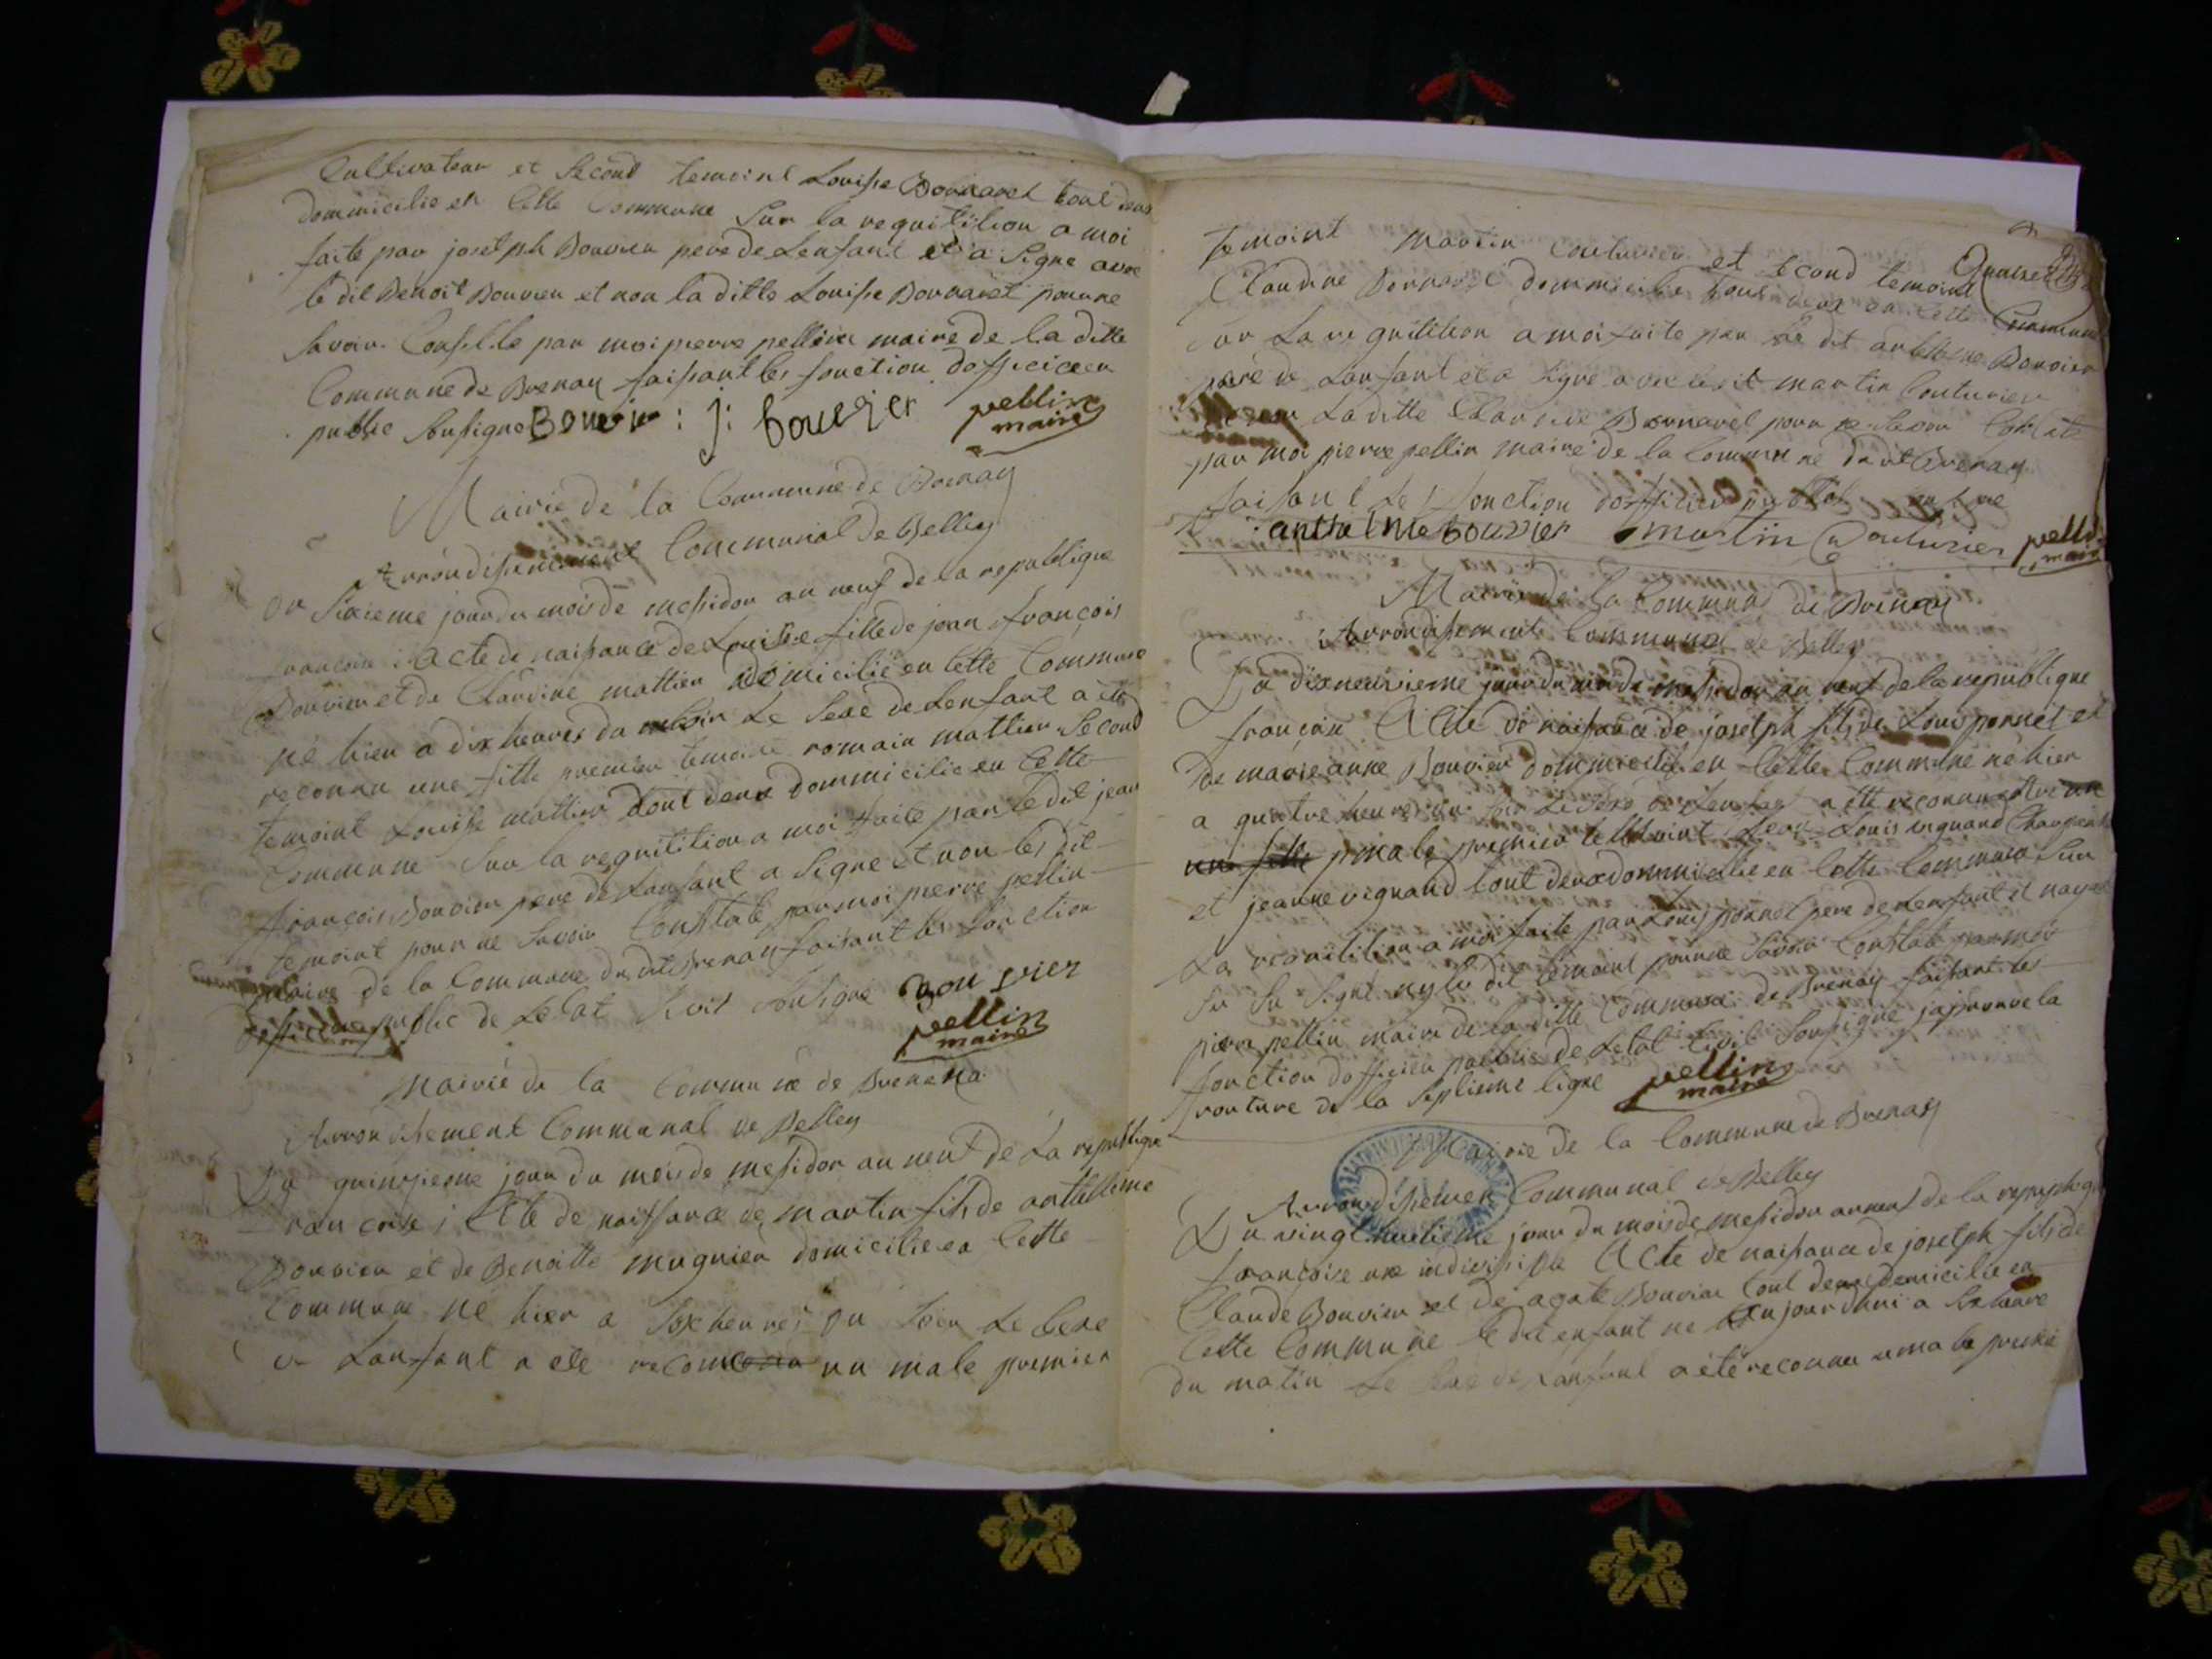 Cultivateur et Second temoint Louisse Bonnaret tout deux
dommicilie en Cette Commune Sur la requitition a moi
faite par joseph Bouvier pere de Lenfant et a Signe avec
le dit Benoit Bouvier et non la ditte Louisse Bonnaret pour ne
Savoir. par moi pierre pellin maire de la ditte
Commune de Brenay faissant les fonction dofficier
public Soussigne Bouvier : j: bouvier pellin
maire
Mairie de la Commune de Brenay
Arrondissement Communal de Belley
Du Sixieme jour du mois de messidor an neuf de la republique
francoise : Acte de naissance de Louisse fille de jean françois
Bouvier et de Claudine mattieu domicilie en Cette Commune
né hier a dix heures du Le Sexe de Lenfant a été
reconnu une fille premier temoint romain mattieu Second
temoint Louisse mattieu tout deux dommicilie en Cette
Commune Sur la requitition a moi faite par le dit jean
françois Bouvier pere de Lanfant a Signe et non les dit
temoint pour ne Savoir Constaté par moi pierre pellin
maire de la Commune du dit Brenay faisant les fonction
officier public de Letat Sivil Sousigne Bouvier
pellin
maire
Mairie de la Commune de Brenena
Arrondissement Communal de Belley
Du quinzieme jour du mois de messidor an neuf de La republique
francoise ; Acte de naissance de martin fils de antellime
Bouvier et de Benoitte mugnier domicilie en Cette
Commune né hier a Six heures du Soir Le Sexe
de Lanfant a ete un male premier
temoint Martin Couturier et second temoint
Claudine Bonnaret dommicilie tous deux en cette Commune
Sur La requitition a moi faite par le dit antelme Bouvier
pere de Lanfant et a Signe avec le dit martin Couturier
non La ditte Claudine Bonnaret pour ne Savoir
par moi pierre pellin maire de la Commune du dit Brenay
faisant Les fonction dofficier
anthelme bouvier martin Couturier pellin
maire
Mairie de la Commune de Brenay
Arrondissement Communal de Belley
Du dixneuvieme jour du mois de messidor an neuf de la republique
françoise Acte de naissance de joseph fils de Louis ponnet et
de marie anne Bouvier dommicilie en Cette Commune né hier
a quatre heures du Soir Le Sexe de Lenfant a été reconnu etre un
une fille male premier temoint Louis vignand
et jeanne vignand tout deux dommicilie en Cette Commune Sur
La requitition a moi faite par Louis ponnet pere de Lenfant et nayant
Su Signé ny le dit temoint pour ne Savoir Constaté par moi
pierre pellin maire de la ditte Commune de Brenay faisant les
fonction dofficier public de Letat Civil Sousigne japrouve la
routure de la Septieme ligne pellin
maire
Mairie de la Commune de Brenay
Arrondissement Communal de Belley
Du vingt huitieme jour du mois de messidor an neuf de la republique
françoise une indivisible Acte de naissance de joseph fils de
Claude Bouvier et de agate Bouvier tout deux domicilie en
Cette Commune le dit enfant ne aujourdhui a Six heure
du matin Le Sexe de Lanfant a été reconnu male premier